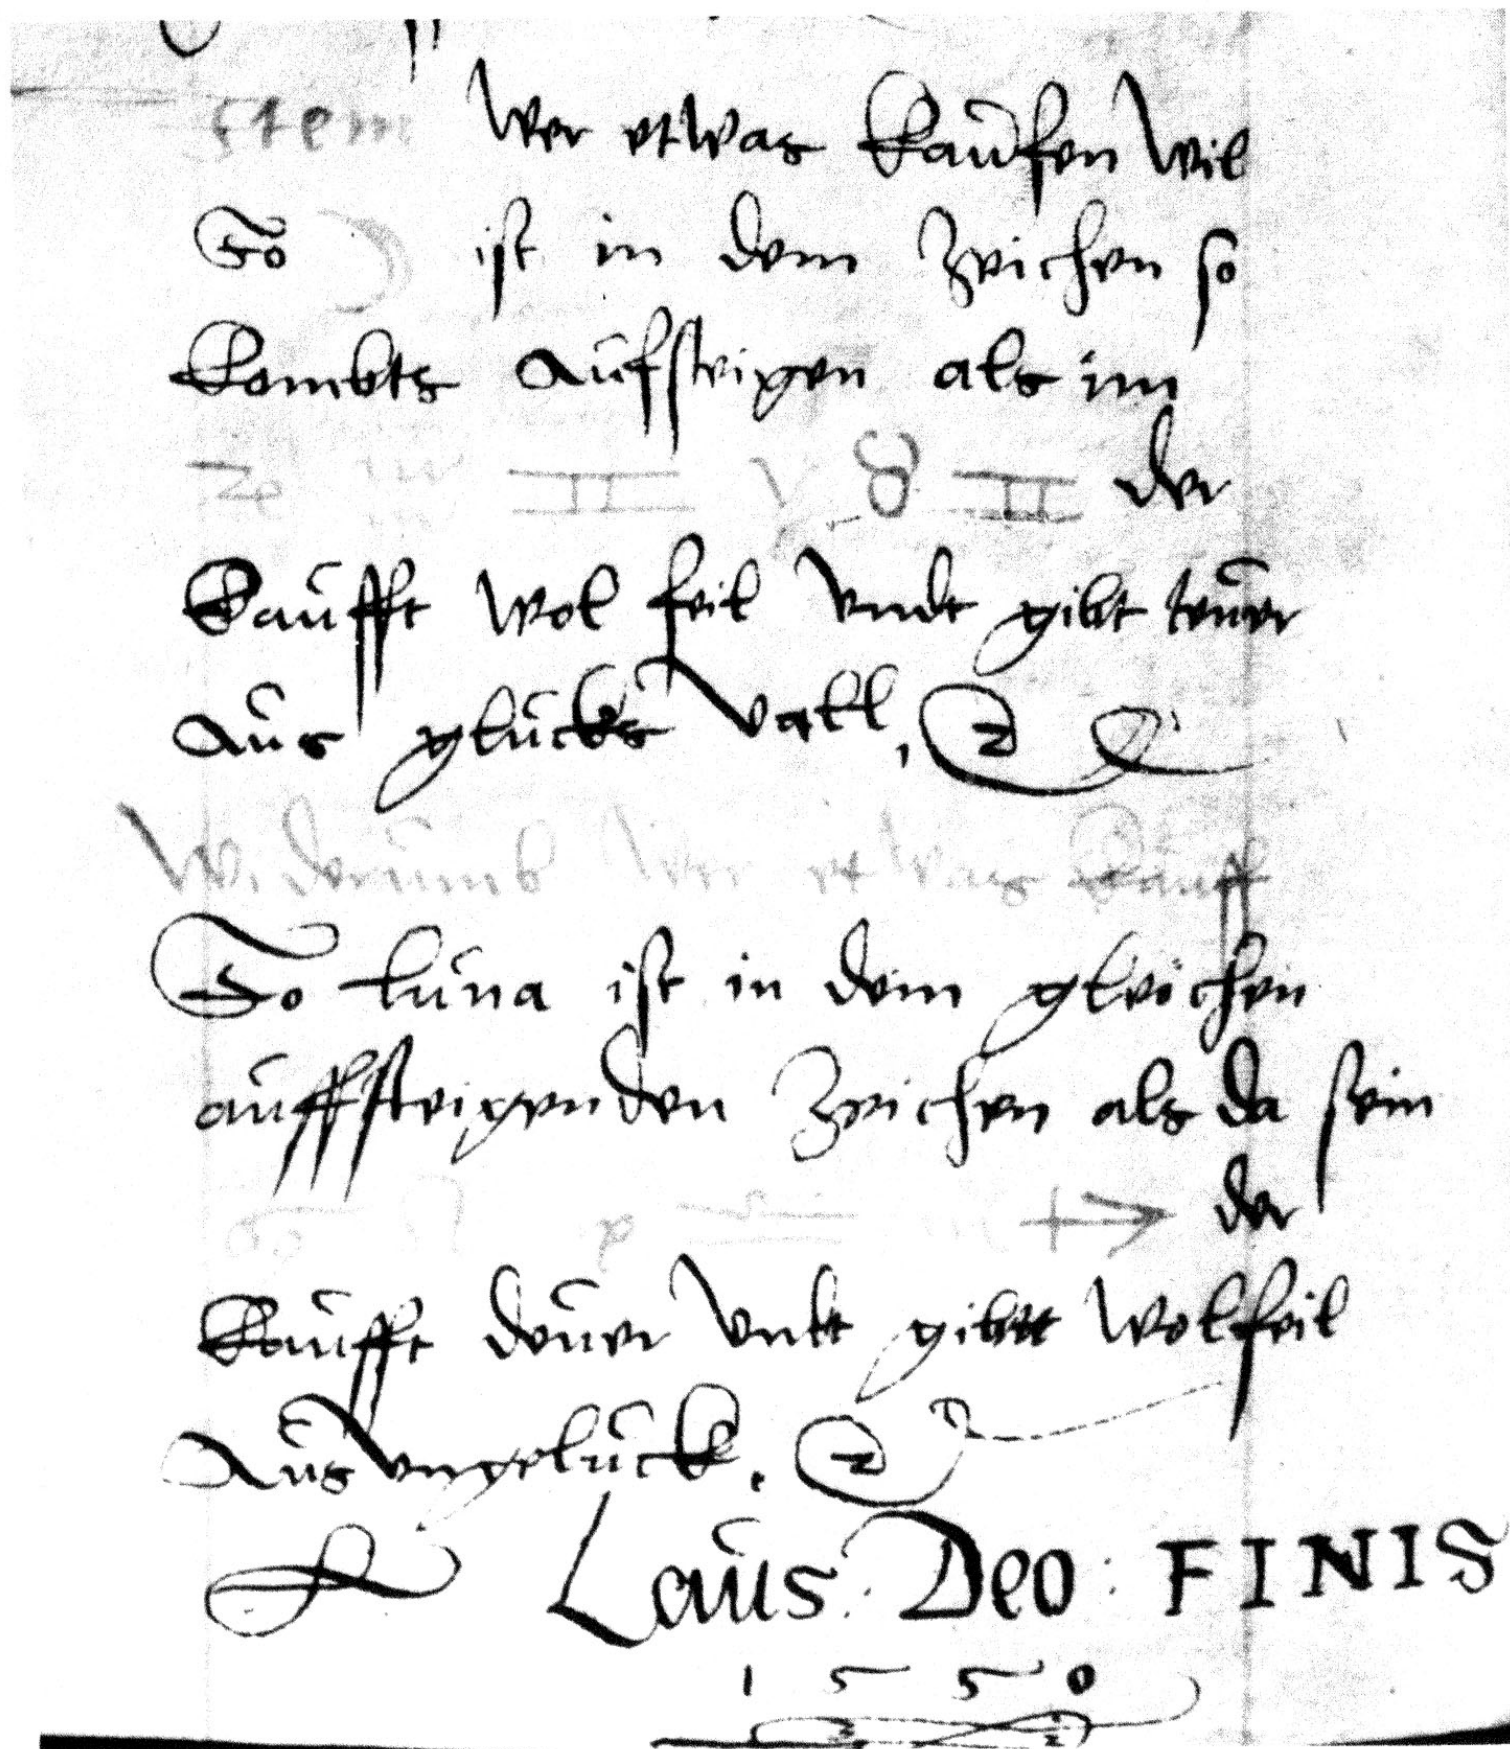 Item Wer etwas kaufen wil
So ☽ ist in dem Zeichen so
kombts aufsteigen als im
♊ ♈ ♉ ♊ der
kaufft wol feil vndt gibt teuer
aus glucks vall,
Widerumb wer etwas kauff
So luna ist in dem gleichen
auffsteigenden Zeichen als da sein
♐ der
kaufft deuer vndt gibtt wolfeil
Aus vngeluck.
Laus: Deo: FINIS
1550